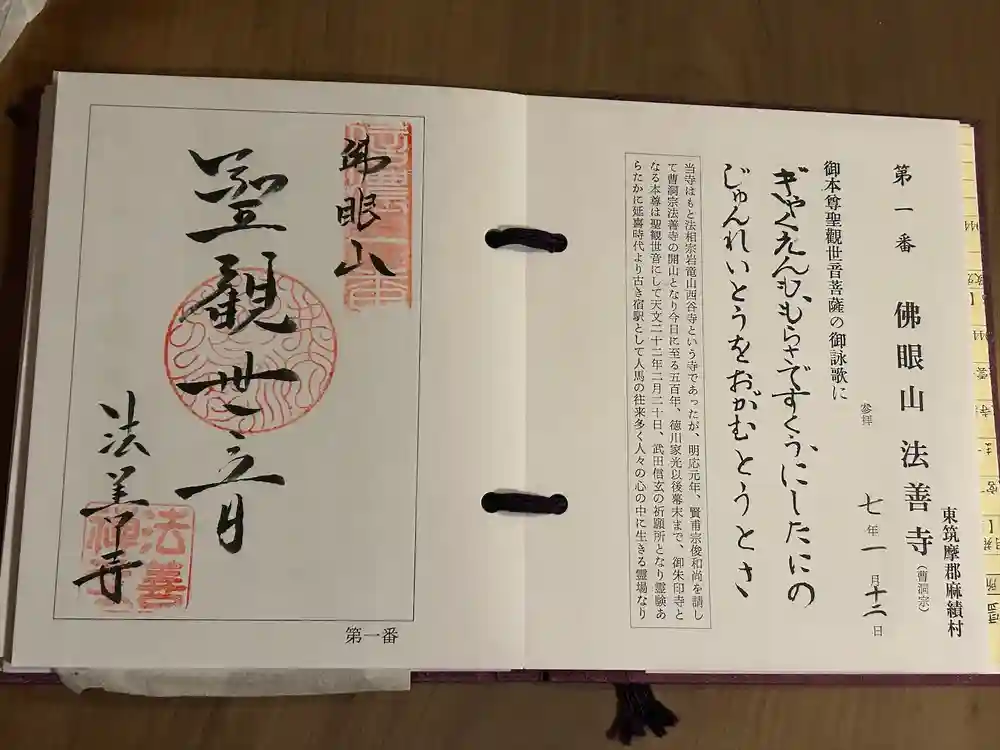 東筑摩郡麻績村
第一番 佛眼山 法善寺 (曹洞宗)
参拝 七年一月十二日
御本尊聖觀世音菩薩の御詠歌に
ぎゃくえんむ、もらさですくう、にしたにの
じゅんれいとうをおがむとうとさ
当寺はもと法相宗岩竜山西谷寺という寺であったが、明応元年、賢甫宗俊和尚を請し
て曹洞宗法善寺の開山となり今日に至る五百年、徳川家光以後幕末まで、御朱印寺と
なる本尊は聖観世音にして天文二十二年二月二十日、武田信玄の祈願所となり霊験あ
らたかに延喜時代より古き宿駅として人馬の往来多く人々の心の中に生きる霊場なり
佛眼山
聖觀世音
法善寺
第一番